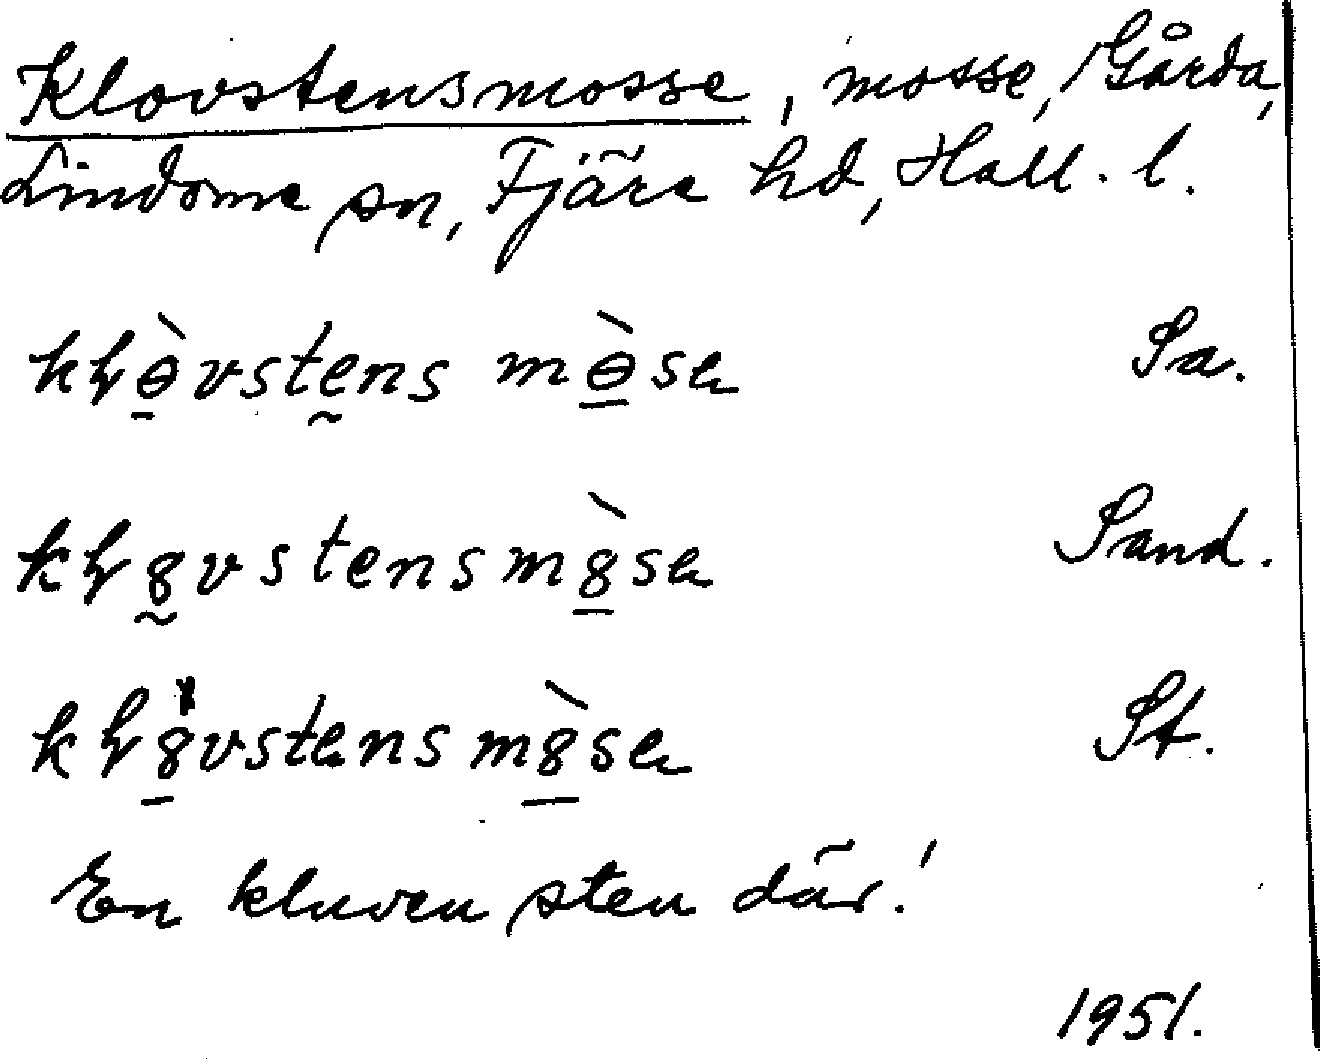 Klovstensmosse, mosse, Gårda,
Lindome sn, Fjäre hd, Hall. l.
kḷɵ̠̀vstḛns mɵ̠̀sə Sa.
kḷ8̰vstensm8̠̀sə Sand.
kḷ8̠̀vstəns m8̠̀sə St.
En kluven sten där!
1951.